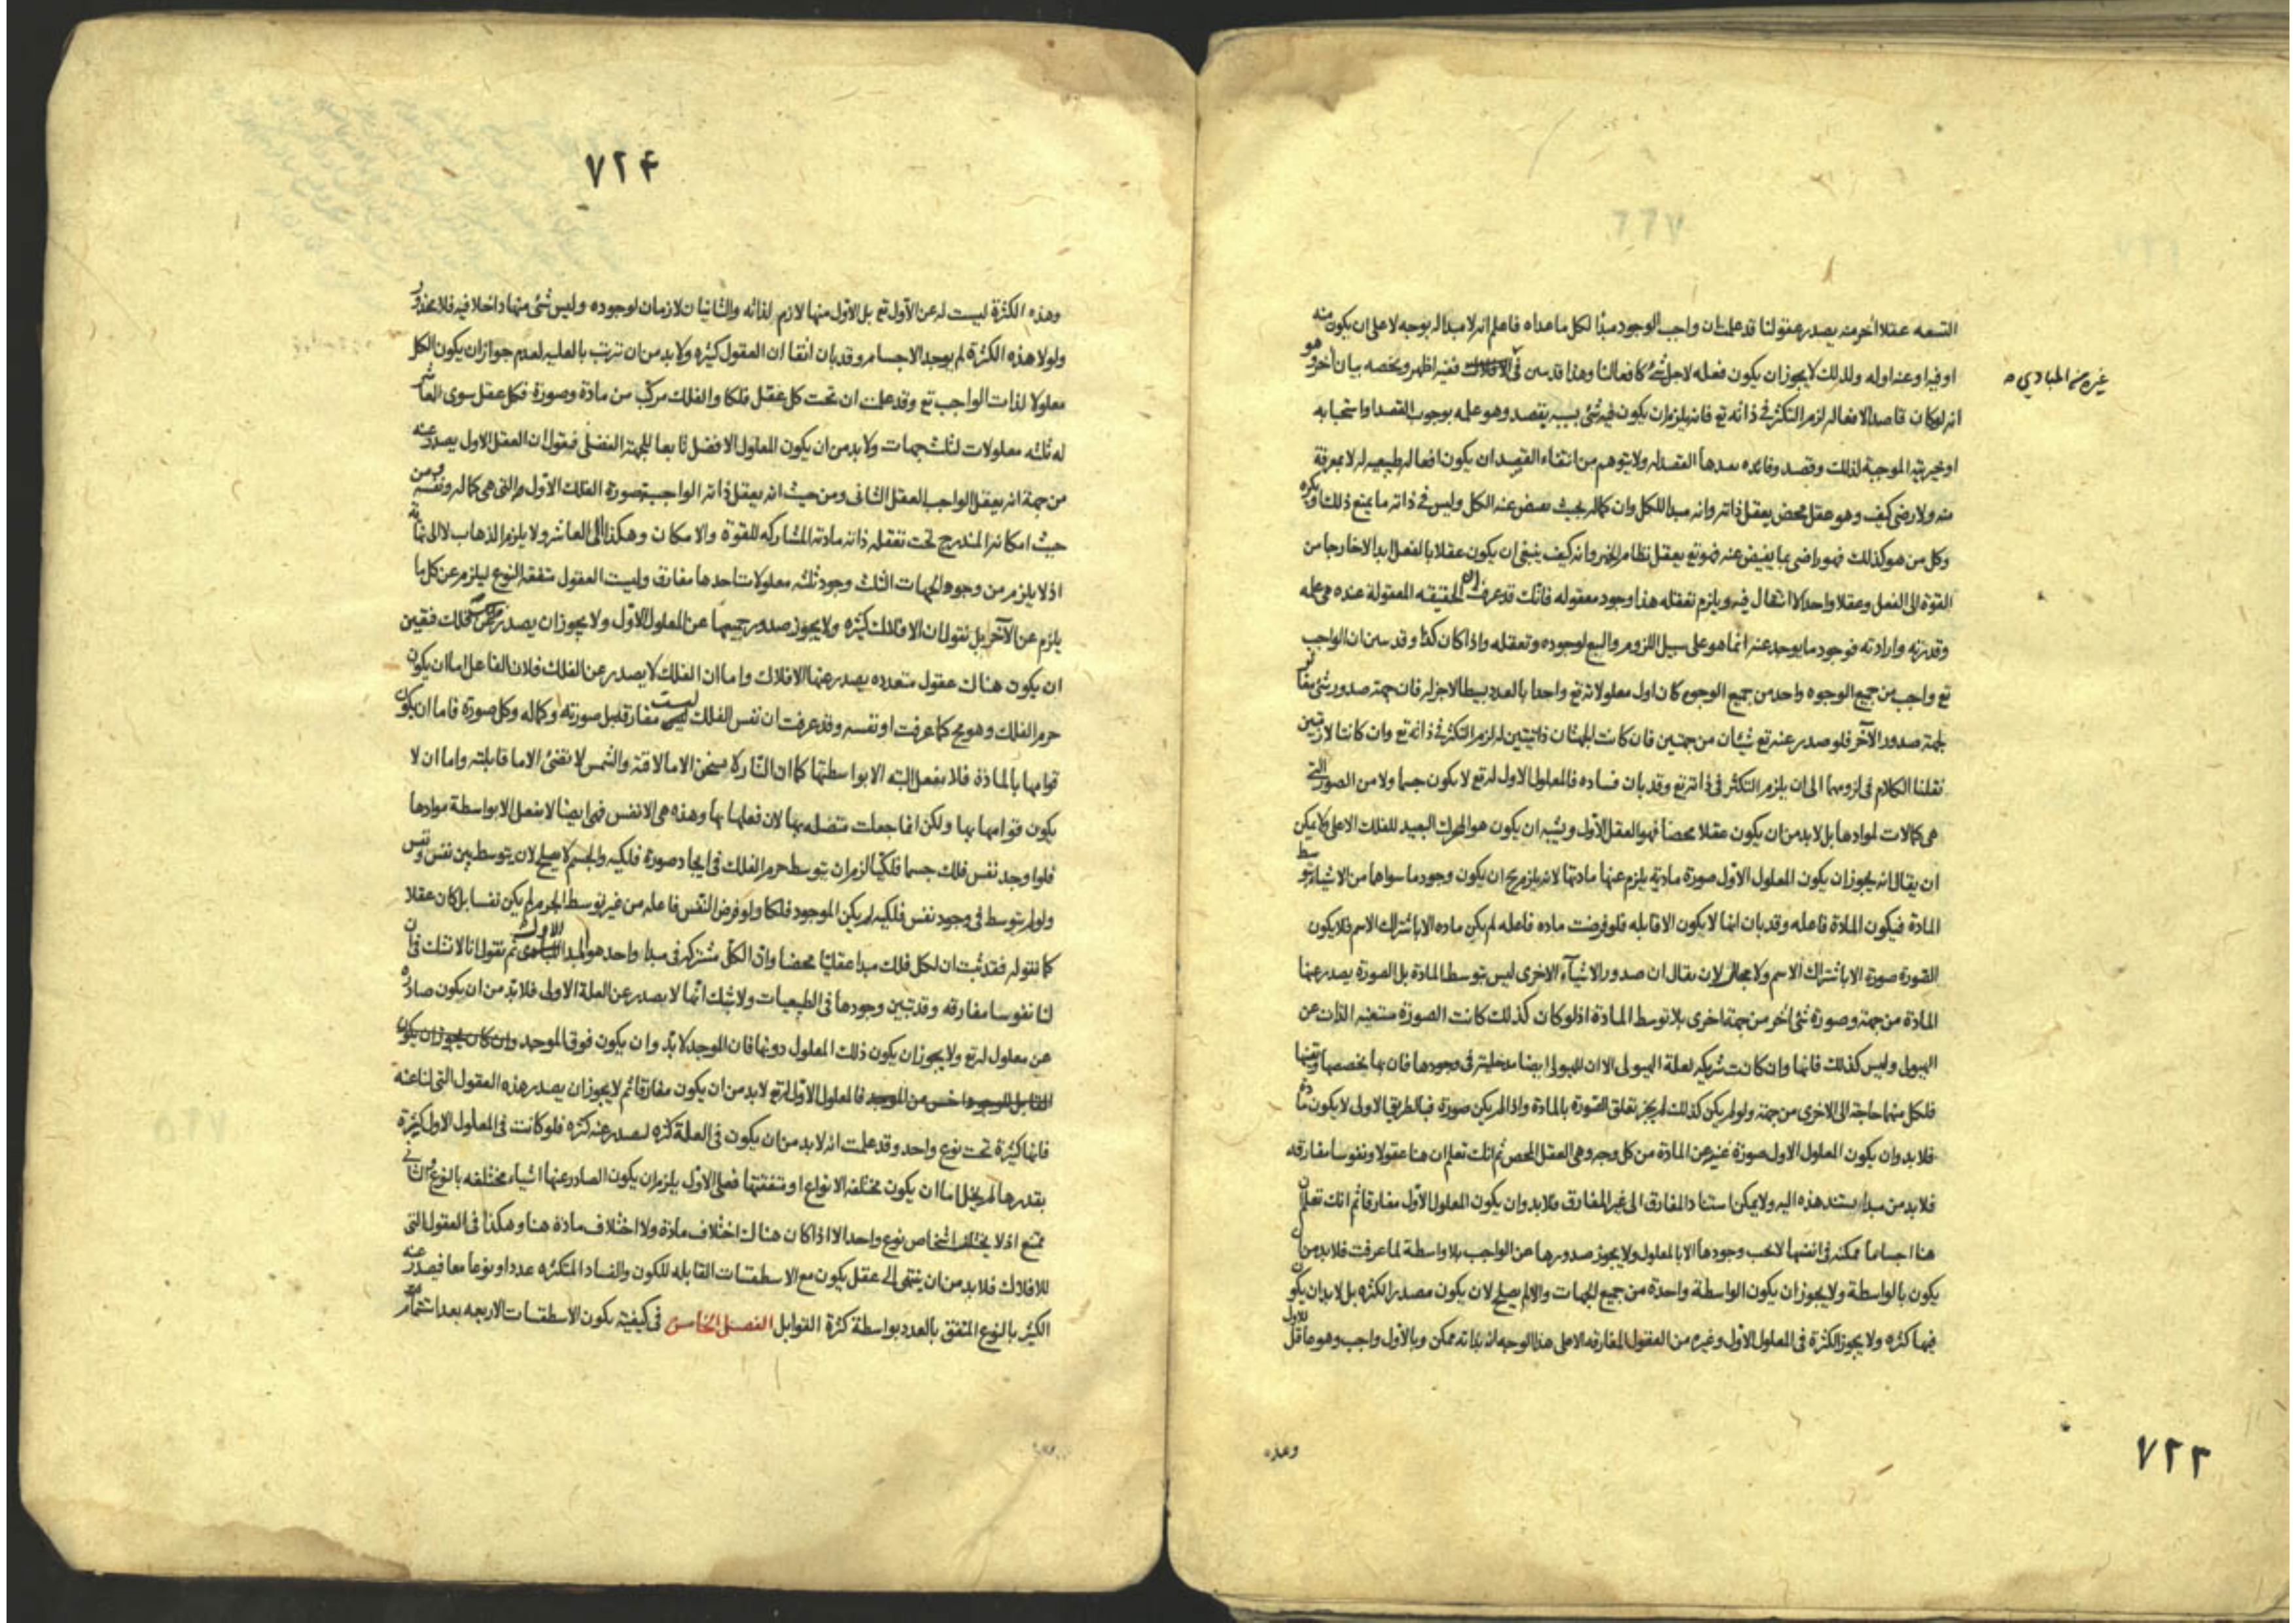 التسعه عقلا اخر منه يصدر عقولنا قد علمت ان واجب الوجود مبدأ لكل ما عداه فاعلم انه لا مبدا له بوجه لا على ان يكون منه
او فيه او عنه او له ولذلك لا يجوز ان يكون فعله لاجل شئ كافعالنا وهذا قد بين في الافلاك ففيه اظهر ويخصه بيان آخر وهو
غيره من المبادي
انه لو كان قاصدا لافعاله لزم التكثر في ذاته تع فانه يلزم ان يكون فيه شئ بسببه يقصد وهو علمه بوجوب القصد او استحبابه
او خيريته الموجبة لذلك وقصد وفائده بعدها القصد له ولا يتوهم من انتفاء القصد ان يكون افعاله طبيعيه له لا بمعرفة
منه ولا رضى كيف وهو عقل محض يعقل ذاته وانه مبدا للكل وان كماله بحيث يفيض عنه الكل وليس في ذاته ما يمنع ذلك او يكره
وكل من هو كذلك فهو راضى بما يفيض عنه فهو تع يعقل نظام الخير وانه كيف ينبغي ان يكون عقلا بالفعل ابدا لا خارجا من
القوة الى الفعل وعقلا واحدا لا انتقال فيه ويلزم تعقله هذا وجود معقوله فانك قد عرفت ان الحقيقه المعقولة عنده هي علمه
وقدرته وارادته فوجود ما يوجد عنه انما هو على سبيل اللزوم والتبع لوجوده وتعقله واذا كان كذا وقد بين ان الواجب
تع واجب من جميع الوجوه واحد من جميع الوجوه كان اول معلولاته تع واحدا بالعدد بسيطا لا جزء له فان جهة صدور شئ يغاير
لجهة صدور الآخر فلو صدر عنه تع شيئان من جهتين فان كانت الجهتان ذاتيتين له لزم التكثر في ذاته تع وان كانتا لازمتين
نقلنا الكلام في لزومهما الى ان يلزم التكثر في ذاته تع وقد بان فساده فالمعلول الاول له تع لا يكون جسما ولا من الصور التي
هي كمالات لموادها بل لا بد من ان يكون عقلا محضا فهو العقل الاول ويشبه ان يكون هو المحرك البعيد للفلك الاعلى ولا يمكن
ان يقال انه يجوز ان يكون المعلول الاول صورة مادية يلزم عنها مادتها لانه يلزم ح ان يكون وجود ما سواها من الاشياء بتوسط
المادة فيكون المادة فاعله وقد بان انها لا يكون الا قابله فلو فرضت ماده فاعله لم يكن ماده الا باشتراك الاسم فلا يكون
الصورة صورة الا باشتراك الاسم ولا مجال لان يقال ان صدور الاشياء الاخرى ليس بتوسط المادة بل الصورة يصدر عنها
المادة من جهة وصورة شئ آخر من جهة اخرى بلا توسط المادة اذ لو كان كذلك كانت الصورة مستغنيه الذات عن
الهيولى وليس كذلك فانها وان كانت شريكه لعلة الهيولى الا ان للهيولى ايضا مدخلية في وجودها فان بها يخصصها وتعينها
فلكل منهما حاجة الى الاخرى من جهة ولو لم يكن كذلك لم يجز تعلق الصورة بالمادة واذا لم يكن صورة فبالطريق الاولى لا يكون مادة
فلا بد وان يكون المعلول الاول صورة غير عن المادة من كل وجه وهي العقل المحض ثم انك تعلم ان هنا عقولا ونفوسا مفارقه
فلا بد من مبدا يستند هذه اليه ولا يمكن استناد المفارق الى غير المفارق فلا بد وان يكون المعلول الاول مفارقا ثم انك تعلم ان
هنا اجساما ممكنه في انفسها لا يجب وجودها الا بالمعلول ولا يجوز صدورها عن الواجب بلا واسطة لما عرفت فلا بد من ان
يكون بالواسطة ولا يجوز ان يكون الواسطة واحدة من جميع الجهات والا لم يصلح لان يكون مصدر الكثره بل لا بد ان يكون
فيها كثره ولا يجوز الكثرة في المعلول الاول وغيره من العقول المفارقه الا على هذا الوجه انه بذاته ممكن وبالاول واجب وهو عاقل للاول
وهذه
٧٢٣
٧٢۴
وهذه الكثرة ليست له عن الاول تع بل الاول منها لازم لذاته والثانيان لازمان لوجوده وليس شئ منها داخلا فيه فلا محذور
ولولا هذه الكثرة لم يوجد الاجسام وقد بان انفا ان العقول كثيره ولا بد من ان ترتب بالعليه لعدم جواز ان يكون الكل
معلولا لذات الواجب تع وقد علمت ان تحت كل عقل فلكا والفلك مركب من مادة وصورة فكل عقل سوى العاشر
له ثلثه معلولات لثلث جهات ولا بد من ان يكون المعلول الافضل تابعا للجهة الفضلى فنقول ان العقل الاول يصدر عنه
من جهة انه يعقل الواجب العقل الثانى ومن حيث انه يعقل ذاته الواجبة صورة الفلك الاول والتي هي كماله ونفسه ومن
حيث امكانه المندرج تحت تعقله ذاته مادته المشاركه للقوة والامكان وهكذا الى العاشر ولا يلزم الذهاب لا الى نهاية
اذ لا يلزم من وجود الجهات الثلث وجود ثلثه معلولات احدها مفارق وليست العقول متفقه النوع ليلزم عن كل ما
يلزم عن الآخر بل نقول ان الافلاك كثيره ولا يجوز صدور جميعها عن المعلول الاول ولا يجوز ان يصدر فلك عن فلك فتعين
ان يكون هناك عقول متعدده يصدر عنها الافلاك واما ان الفلك لا يصدر عن الفلك فلان الفاعل اما ان يكون
جرم الفلك وهو مح كما عرفت او نفسه وقد عرفت ان نفس الفلك ليست مفارقه بل صورته وكماله وكل صورة فاما ان يكون
قوامها بالمادة فلا يفعل البته الا بواسطتها كما ان النار لا يسخن الا ما لاقته والشمس لا تضئ الا ما قابلته واما ان لا
يكون قوامها بها ولكن انما جعلت متصله بها لان فعلها بها وهذه هي الانفس فهي ايضا لا يفعل الا بواسطة موادها
فلو اوجد نفس فلك جسما فلكيا لزم ان يتوسط جرم الفلك في ايجاد صورة فلكيه والجسم لا يصلح لان يتوسط بين نفس ونفس
ولو لم يتوسط في وجود نفس فلكيه لم يكن الموجود فلكا ولو فرض النفس فاعله من غير توسط الجرم لم يكن نفسا بل كان عقلا
كما نقوله فقد ثبت ان لكل فلك مبدا عقليا محضا وان الكل مشترك في مبدا واحد هو المبدا الاول ثم نقول انا لا نشك في ان
لنا نفوسا مفارقه وقد تبين وجودها في الطبيعيات ولا شك انها لا يصدر عن العلة الاولى فلا بد من ان يكون صادرة
عن معلول له تع ولا يجوز ان يكون ذلك المعلول دونها فان الموجد لا بد وان يكون فوق الموجد وان كان يجوز ان يكون
القابل للوجود اخس من الموجد فالمعلول الاول له تع لا بد من ان يكون مفارقا ثم لا يجوز ان يصدر هذه العقول التي لنا عنه
فانها كثيرة تحت نوع واحد وقد علمت انه لا بد من ان يكون في العلة كثره ليصدر عنه كثره فلو كانت في المعلول الاول كثيرة
بقدرها لم يخل اما ان يكون مختلفه الانواع او متفقتها فعلى الاول يلزم ان يكون الصادر عنها اشياء مختلفه بالنوع والثاني
ممتنع اذ لا يختلف اشخاص نوع واحد الا اذا كان هناك اختلاف مادة ولا اختلاف مادة هنا وهكذا في العقول التي
للافلاك فلا بد من ان ينتهي الى عقل يكون مع الاسطقسات القابله للكون والفساد المتكثره عددا ونوعا معا فيصدر عنه
الكثير بالنوع المتفق بالعدد بواسطة كثرة القوابل الفصل الخامس في كيفية تكون الاسطقسات الاربعه بعد استتمام